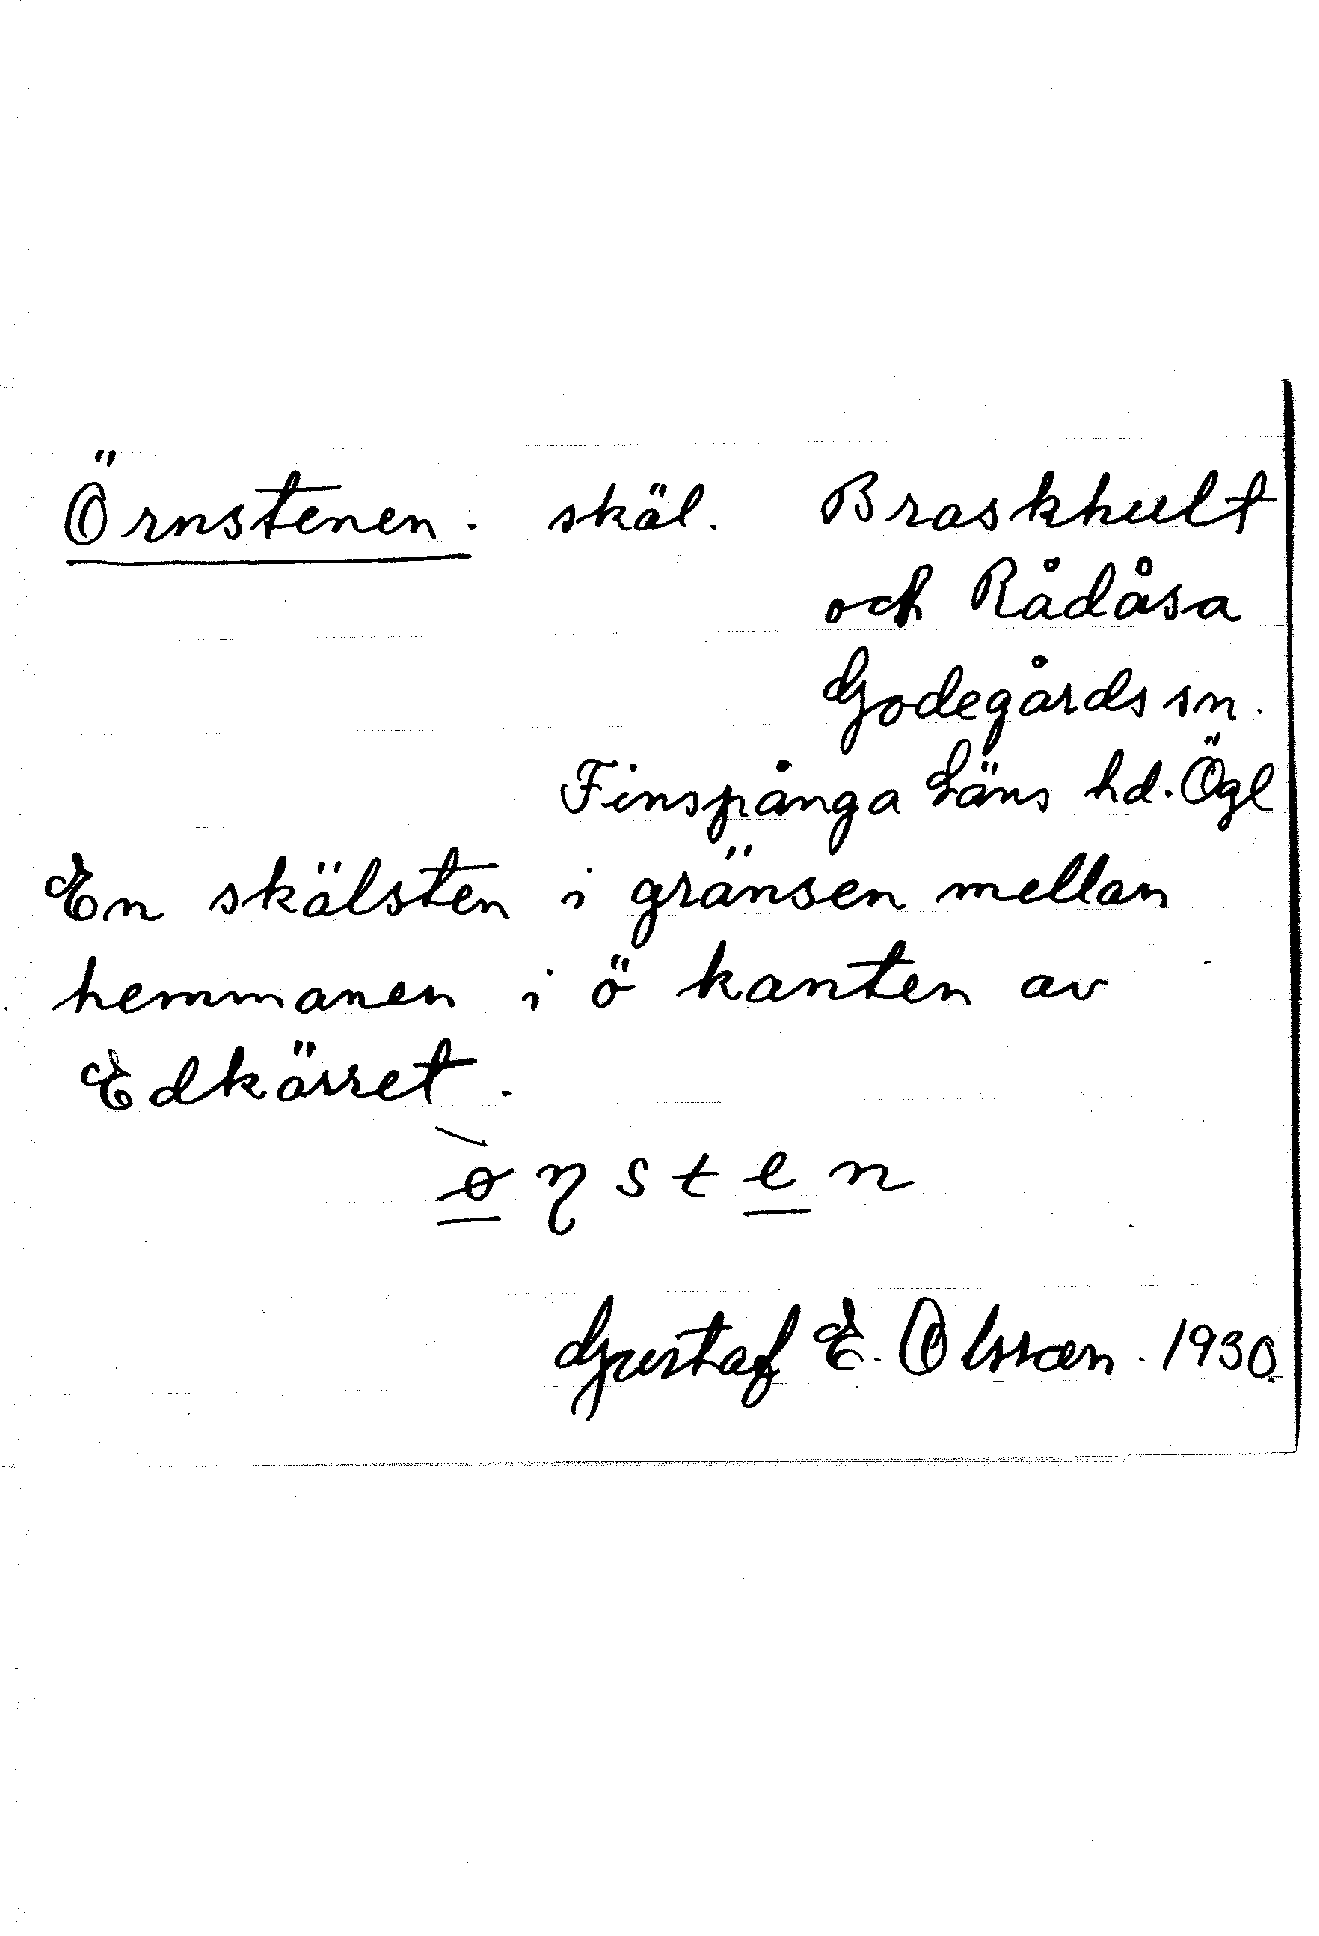 Örnstenen. skäl. Braskhult
och Rådåsa
Godegårds sn.
Finspånga Läns hd. Ögl
En skälsten i gränsen mellan
hemmanen i ö kanten av
Edkärret.
ø̀ɳsten
Gustaf E. Olsson. 1930